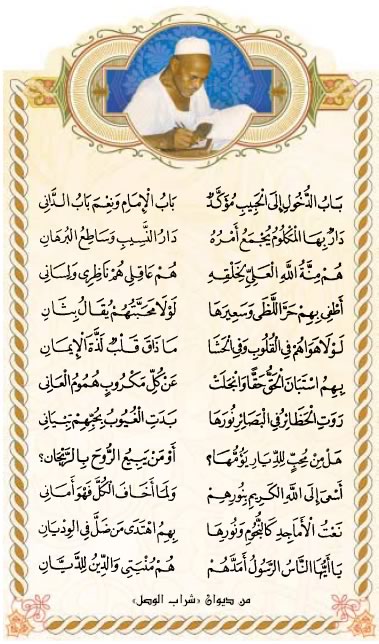 بَابُ الدُّخُولِ إِلَى الْحَبِيبِ مُؤَكَّدٌ بَابُ الْإِمَامِ وَنِعْمَ بَابُ الدَّانِي
دَارٌ بِهَا الْمَكْلُومُ يُجْمَعُ أَمْرُهُ دَارُ النَّسِيبِ وَسَاطِعُ الْبُرْهَانِ
هُمْ مِنَّةُ اللَّهِ الْعَلِيِّ لِخَلْقِهِ هُمْ عَاقِلِي هُمْ نَاظِرِي وَلِسَانِي
أَطْفِي بِهِمْ حَرَّ اللَّظَى وَسَعِيرِهَا لَوْلَا مَحَبَّتُهُمْ يُقَالُ بِثَانِ
لَوْلَا هَوَاهُمْ فِي الْقُلُوبِ وَفِي الْحَشَا مَا ذَاقَ قَلْبٌ لَذَّةَ الْإِيمَانِ
بِهِمُ اسْتَبَانَ الْحَقُّ حَقًّا وَانْجَلَتْ عَنْ كُلِّ مَكْرُوبٍ هُمُومُ الْعَانِي
رَوَتِ الْحَظَائِرُ فِي الْبَصَائِرِ نُورَهَا بَدَتِ الْغُيُوبُ بِحُبِّهِمْ بِتِبْيَانِ
هَلْ مِنْ مُحِبٍّ لِلدِّيَارِ يَؤُمُّهَا؟ أَوْ مَنْ يَبِيعُ الرُّوحَ بِالرَّيْحَانِ؟
أَسْعَى إِلَى اللَّهِ الْكَرِيمِ بِنُورِهِمْ وَلَمَا أَخَافُ الْكُلَّ فَهْوَ أَمَانِي
نَعْتُ الْأَمَاجِدِ كَالنُّجُومِ وَنُورِهَا بِهِمُ اهْتَدَى مَنْ ضَلَّ فِي الْوِدْيَانِ
يَا أَيُّهَا النَّاسُ الرَّسُولُ أَمَدَّهُمْ هُمْ مُنْيَتِي وَالدِّينُ لِلدَّيَّانِ
من ديوان «شراب الوصل»